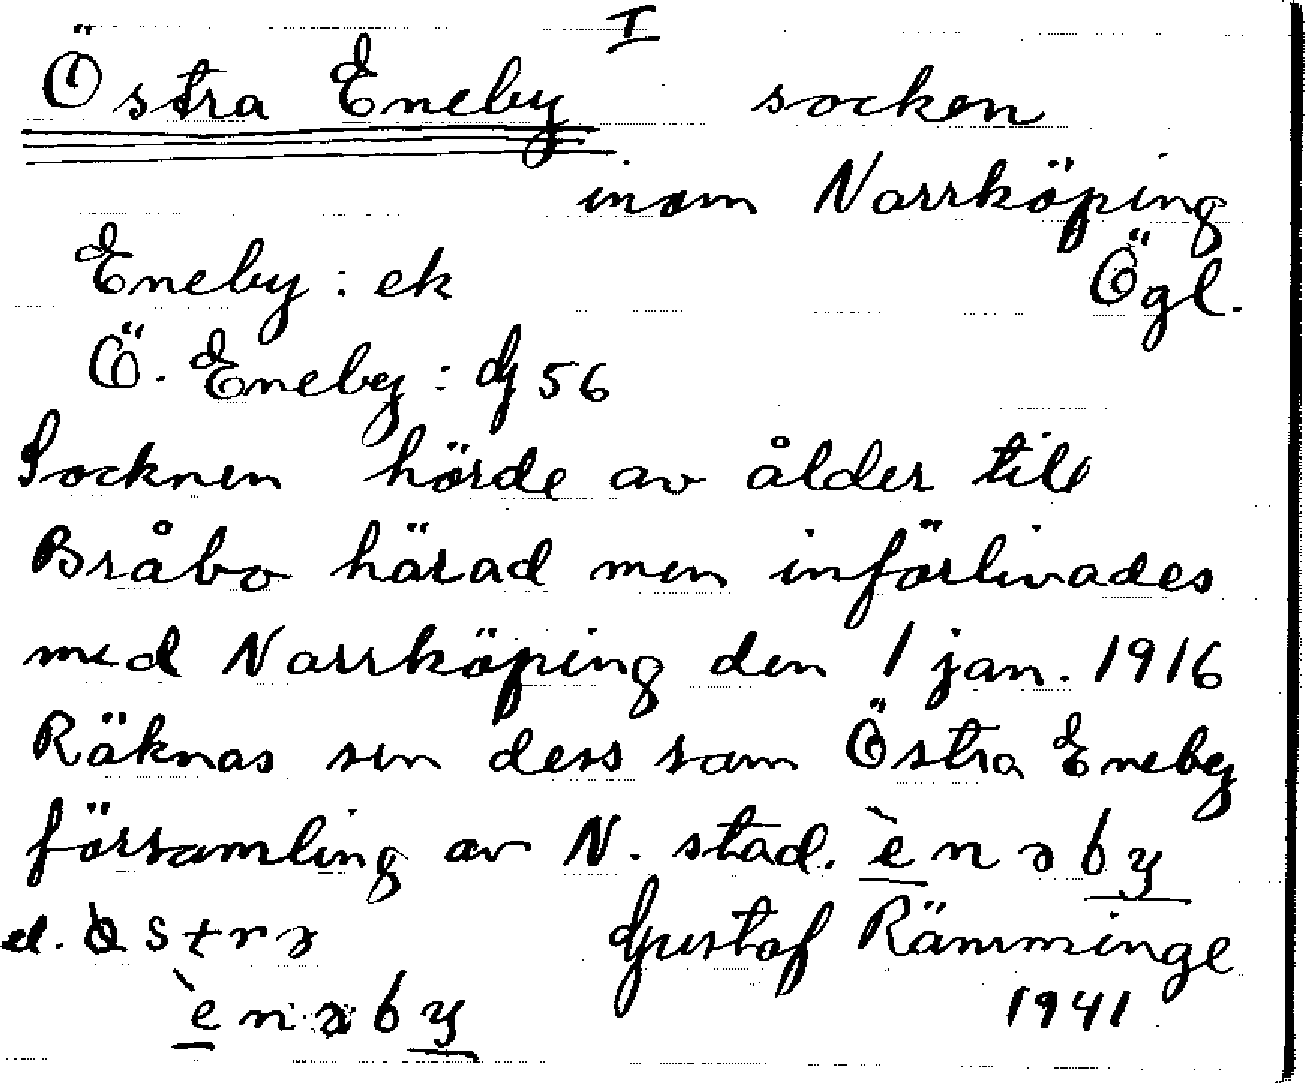 I
Östra Eneby socken
inom Norrköping
Eneby : ek Ögl.
Ö. Eneby : dg 56
Socknen hörde av ålder till
Bråbo härad men införlivades
med Norrköping den 1 jan. 1916
Räknas sen dess som Östra Eneby
församling av N. stad. ènəby
el. òstrə Gustaf Rämminge
ènəby 1941